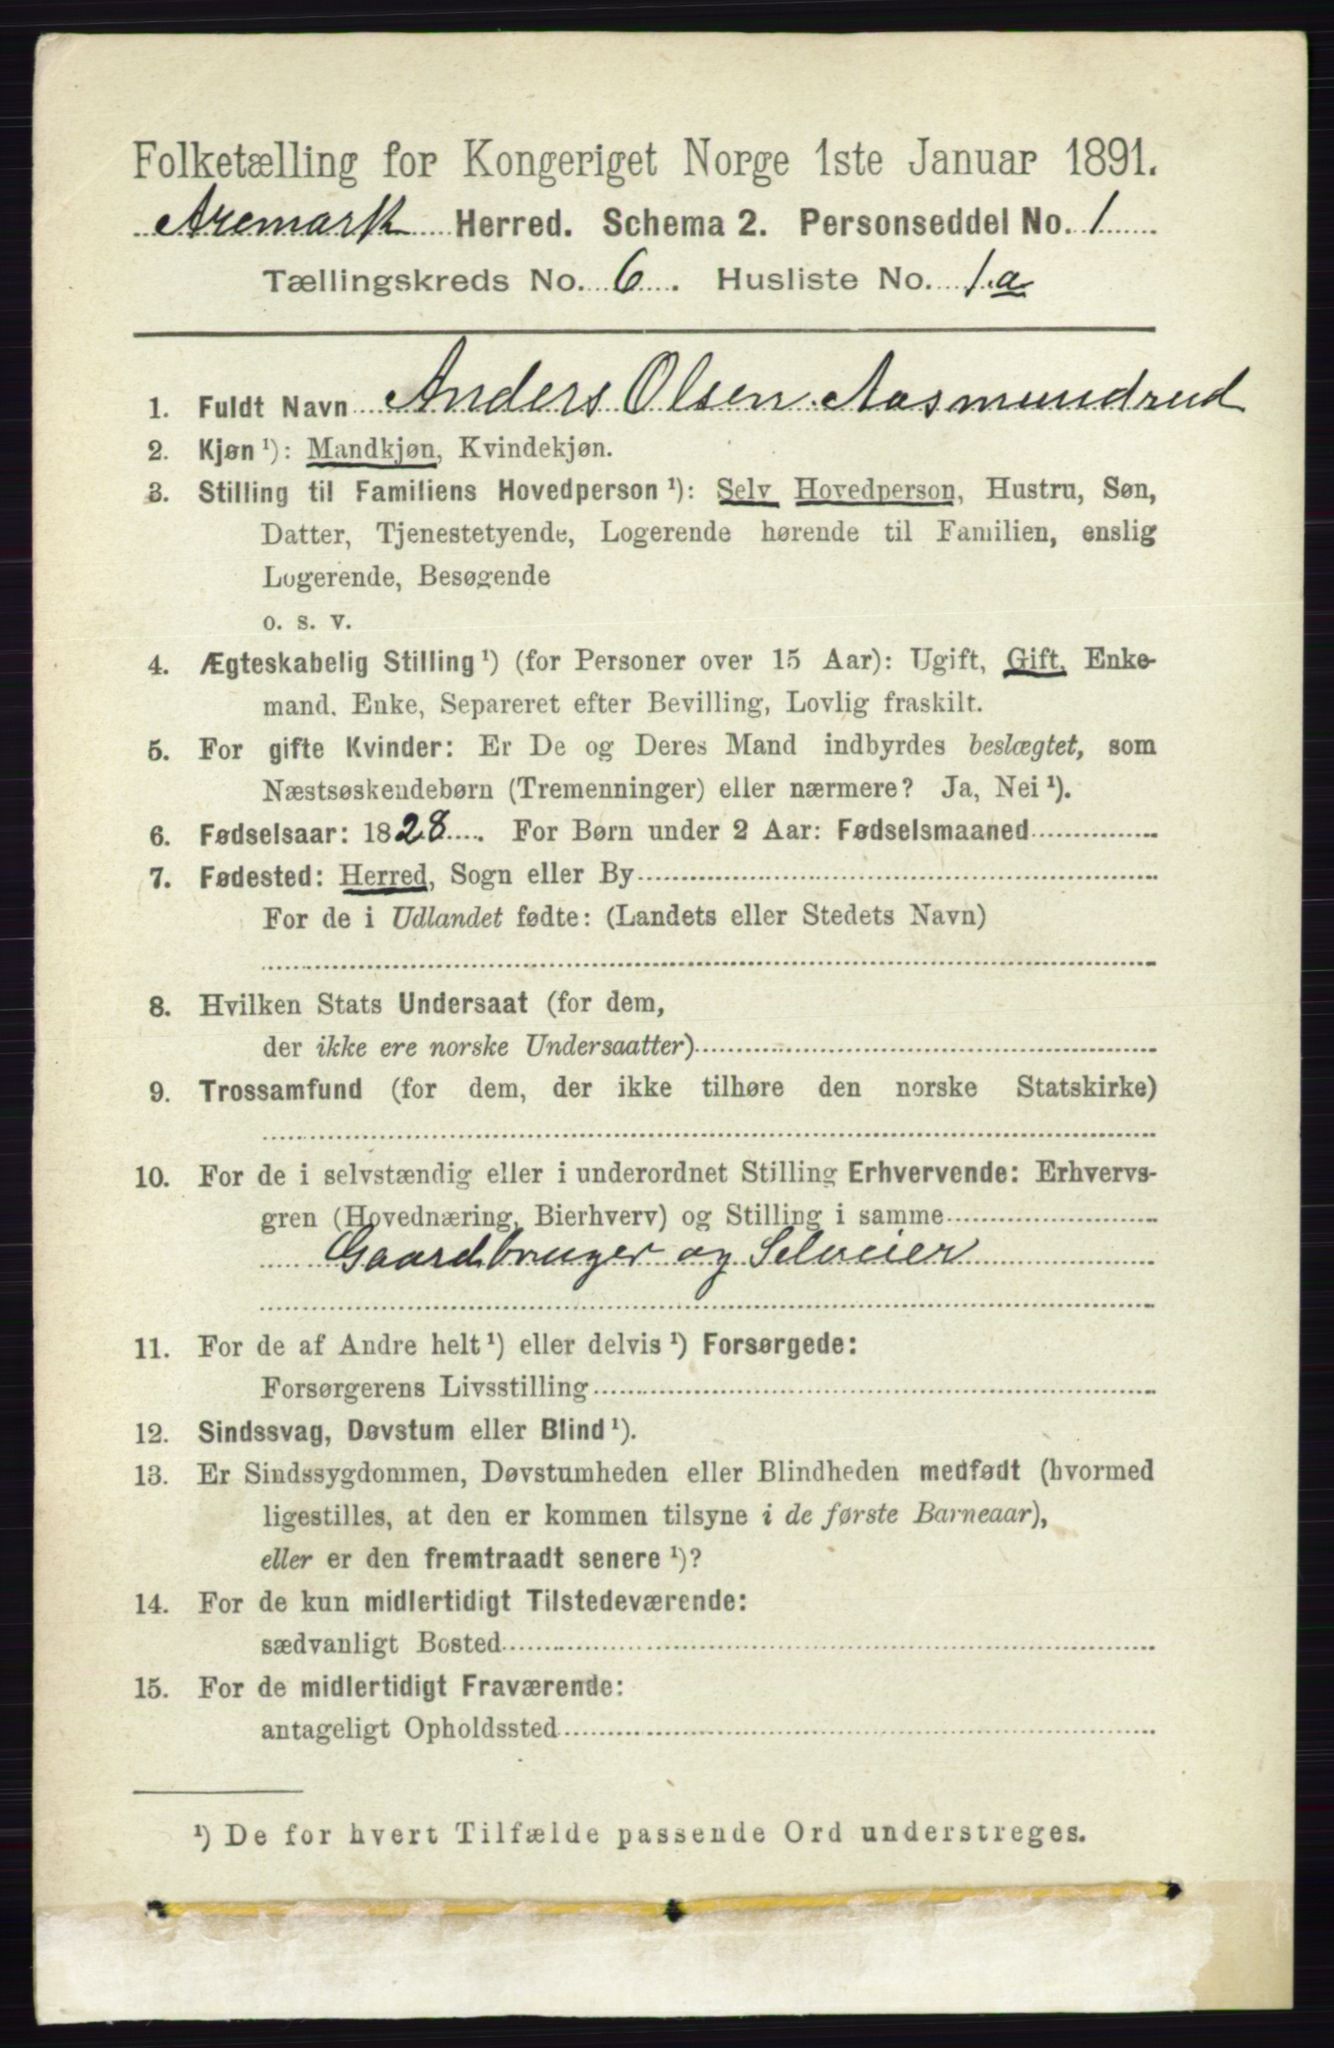 Folketælling for Kongeriget Norge 1ste Januar 1891.
Aremark Herred. Schema 2. Personseddel No. 1
Tællingskreds No. 6. Husliste No. 1.a
1. Fuldt Navn Anders Olsen Aasmundrud
2. Kjøn¹): Mandkjøn, Kvindekjøn.
3. Stilling til Familiens Hovedperson¹): Selv Hovedperson, Hustru, Søn,
Datter, Tjenestetyende, Logerende hørende til Familien, enslig
Logerende, Besøgende
o. s. v.
4. Ægteskabelig Stilling¹) (for Personer over 15 Aar): Ugift, Gift, Enke-
mand, Enke, Separeret efter Bevilling, Lovlig fraskilt.
5. For gifte Kvinder: Er De og Deres Mand indbyrdes beslægtet, som
Næstsøskendebørn (Tremenninger) eller nærmere? Ja, Nei¹).
6. Fødselsaar: 1828. For Børn under 2 Aar: Fødselsmaaned
7. Fødested: Herred, Sogn eller By
For de i Udlandet fødte: (Landets eller Stedets Navn)
8. Hvilken Stats Undersaat (for dem,
der ikke ere norske Undersaatter)
9. Trossamfund (for dem, der ikke tilhøre den norske Statskirke)
10. For de i selvstændig eller i underordnet Stilling Erhvervende: Erhvervs-
gren (Hovednæring, Bierhverv) og Stilling i samme
Gaardbruger og Selveier
11. For de af Andre helt¹) eller delvis¹) Forsørgede:
Forsørgerens Livsstilling
12. Sindssvag, Døvstum eller Blind¹).
13. Er Sindssygdommen, Døvstumheden eller Blindheden medfødt (hvormed
ligestilles, at den er kommen tilsyne i de første Barneaar),
eller er den fremtraadt senere¹)?
14. For de kun midlertidigt Tilstedeværende:
sædvanligt Bosted
15. For de midlertidigt Fraværende:
antageligt Opholdssted
¹) De for hvert Tilfælde passende Ord understreges.